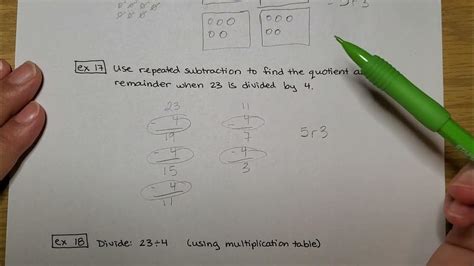 5r3
ex 17 Use repeated subtraction to find the quotient
remainder when 23 is divided by 4.
23 11
- 4 - 4
19 7
- 4 - 4
15 3
- 4
11
5r3
ex 18 Divide: 23÷4 (using multiplication table)